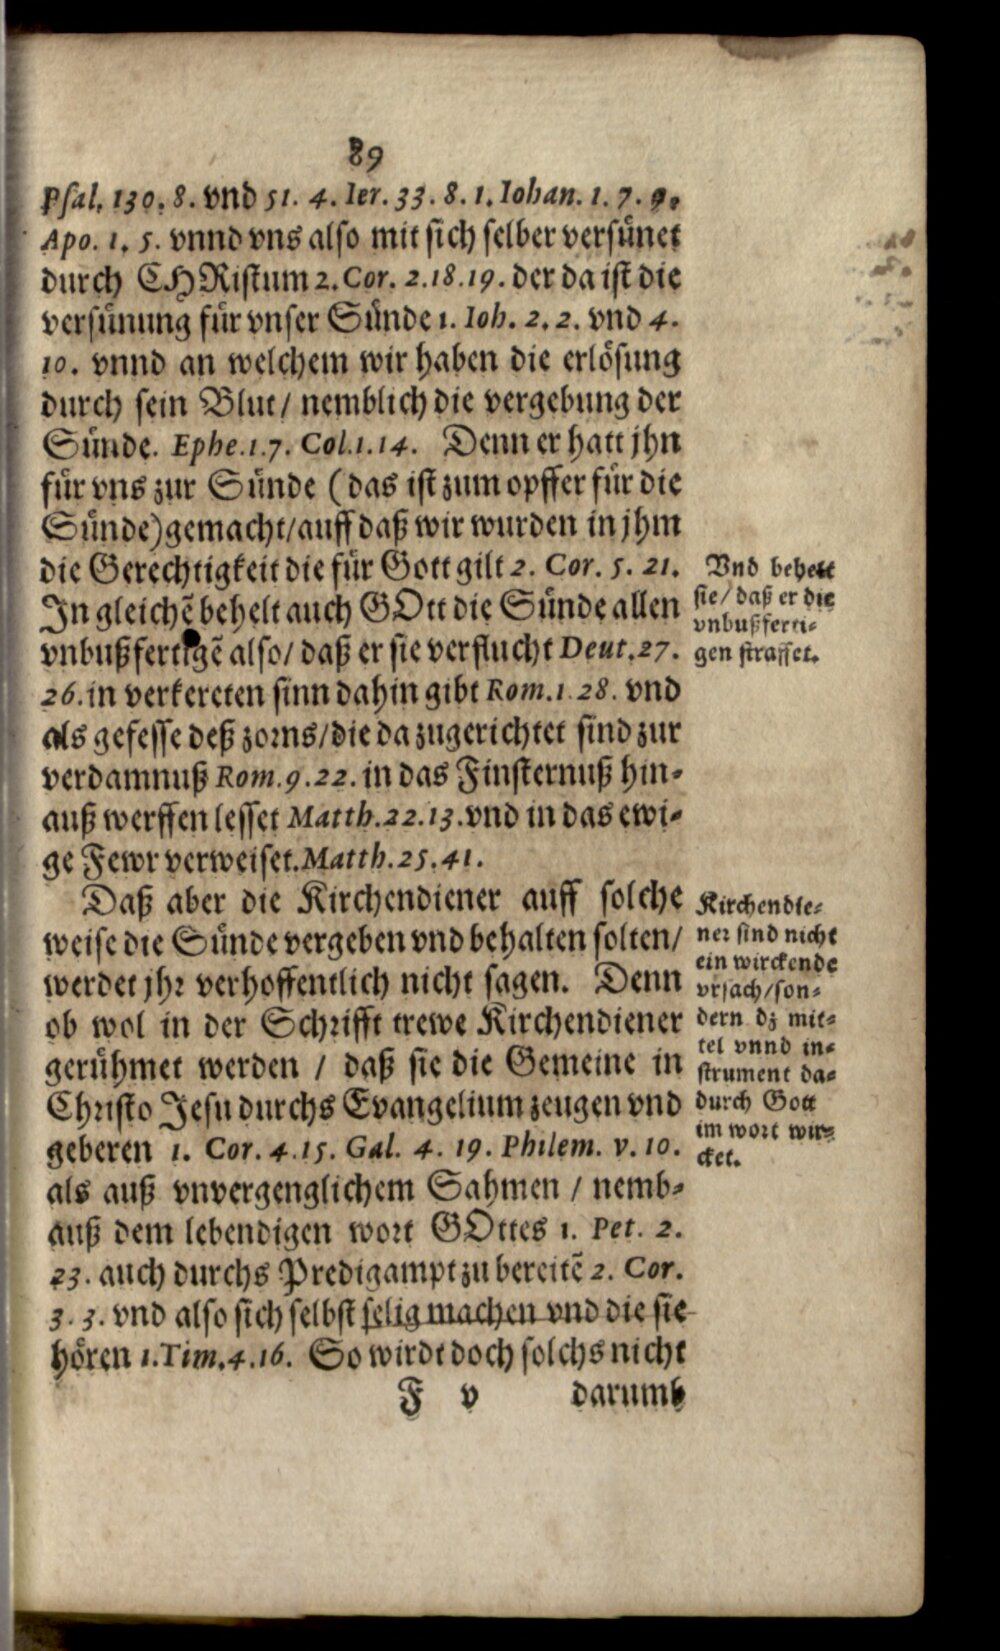 89
Psal. 130. 8. vnd 51. 4. Ier. 33. 8. 1. Iohan. 1. 7. 9.
Apo. 1. 5. vnnd vns also mit sich selber versůnet
durch CHRistum 2. Cor. 2. 18. 19. der da ist die
versůnung fůr vnser Sůnde 1. Ioh. 2. 2. vnd 4.
10. vnnd an welchem wir haben die erlősung
durch sein Blut / nemblich die vergebung der
Sůnde. Ephe. 1. 7. Col. 1. 14. Denn er hatt jhn
fůr vns zur Sůnde (das ist zum opffer fůr die
Sůnde) gemacht / auff daß wir wurden in jhm
die Gerechtigkeit die fůr Gott gilt 2. Cor. 5. 21.
In gleichẽ behelt auch GOtt die Sůnde allen
vnbußfertigẽ also / daß er sie verflucht Deut. 27.
26. in verkereten sinn dahin gibt Rom. 1. 28. vnd
als gefesse deß zorns / die da zugerichtet sind zur
verdamnuß Rom. 9. 22. in das Finsternuß hin-
auß werffen lesset Matth. 22. 13. vnd in das ewi-
ge Fewr verweiset. Matth. 25. 41.
Vnd behelt
sie / daß er die
vnbußferti-
gen straffet.
Daß aber die Kirchendiener auff solche
weise die Sůnde vergeben vnd behalten solten /
werdet jhr verhoffentlich nicht sagen. Denn
ob wol in der Schrifft trewe Kirchendiener
gerůhmet werden / daß sie die Gemeine in
Christo Jesu durchs Evangelium zeugen vnd
geberen 1. Cor. 4. 15. Gal. 4. 19. Philem. v. 10.
als auß vnvergenglichem Sahmen / nemb-
auß dem lebendigen wort GOttes 1. Pet. 2.
23. auch durchs Predigampt zu bereitẽ 2. Cor.
3. 3. vnd also sich selbst selig machen vnd die sie
hőren 1. Tim. 4. 16. So wirdt doch solchs nicht
Kirchendie-
ner sind nicht
ein wirckende
vrsach / son-
dern dz mit-
tel vnnd in-
strument da-
durch Gott
im wort wir-
cket.
F v darumb